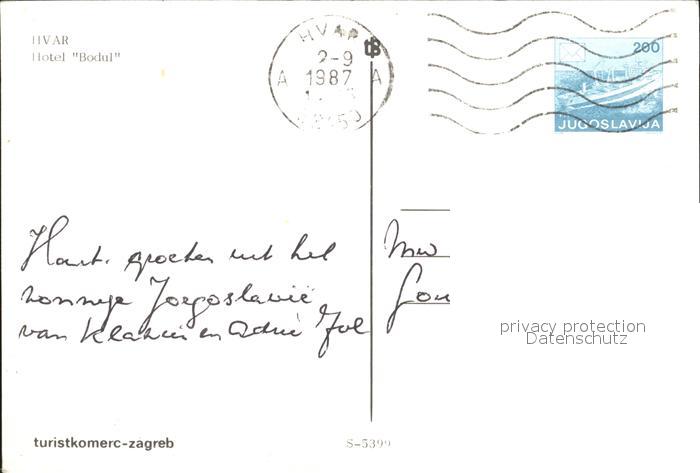 HVAR
Hotel "Bodul"
HVAR
2-9
A 1987 A
200
JUGOSLAVIJA
Hart. groeten uit het
zonnige Joegoslavië
van en Adrie Jol
Mw
Gou
privacy protection
Datenschutz
turistkomerc-zagreb
S-5399